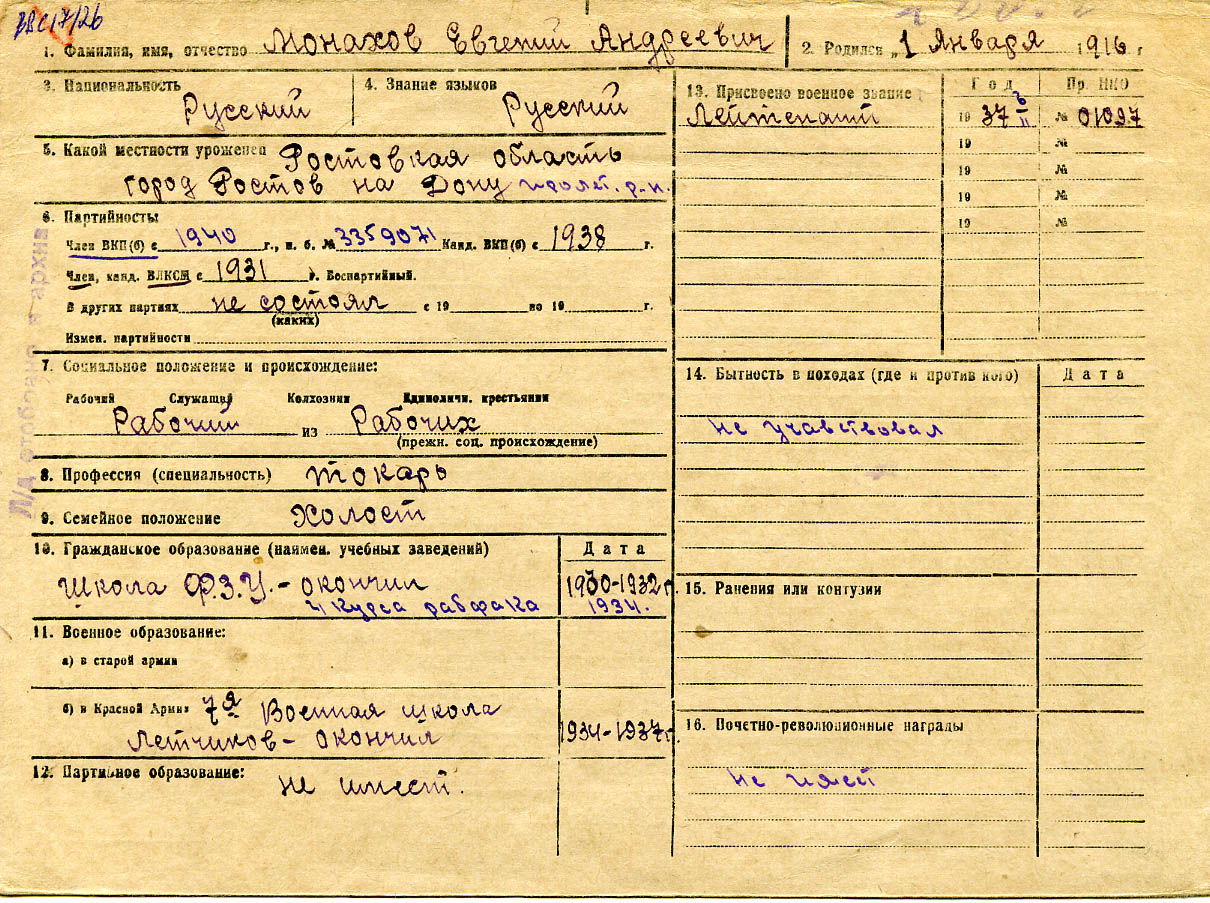 ВВС 17/26
1. Фамилия, имя, отчество Монахов Евгений Андреевич
2. Родился „1 Января 1916 г
3. Национальность
Русский
4. Знание языков
Русский
5. Какой местности уроженец Ростовская область
город Ростов на Дону пролет. р-н.
6. Партийность:
Член ВКП(б) с 1940 г., п. б. № 3359071 Канд. ВКП(б) с 1938 г.
Член, канд. ВЛКСМ с 1931 г. Беспартийный.
В других партиях не состоял с 19 по 19 г.
(каких)
Измен. партийности
7. Социальное положение и происхождение:
Рабочий Служащий Колхозник Единоличн. крестьянин
Рабочий из Рабочих
(прежн. соц. происхождение)
8. Профессия (специальность) токарь
9. Семейное положение Холост
10. Гражданское образование (наимен. учебных заведений)
Дата
Школа Ф.З.У. - окончил 1930-1932 г.
4 курса рабфака 1934.
11. Военное образование:
а) в старой армии
б) в Красной Армии 7я Военная школа
Летчиков - окончил 1934-1937 г
12. Партийное образование:
не имеет.
13. Присвоено военное звание
Год
Пр. НКО
Лейтенант 19 37 № 01097
19 №
19 №
19 №
19 №
14. Бытность в походах (где и против кого)
Дата
не учавствовал
15. Ранения или контузии
16. Почетно-революционные награды
не имеет
Л/д отобрано в архив